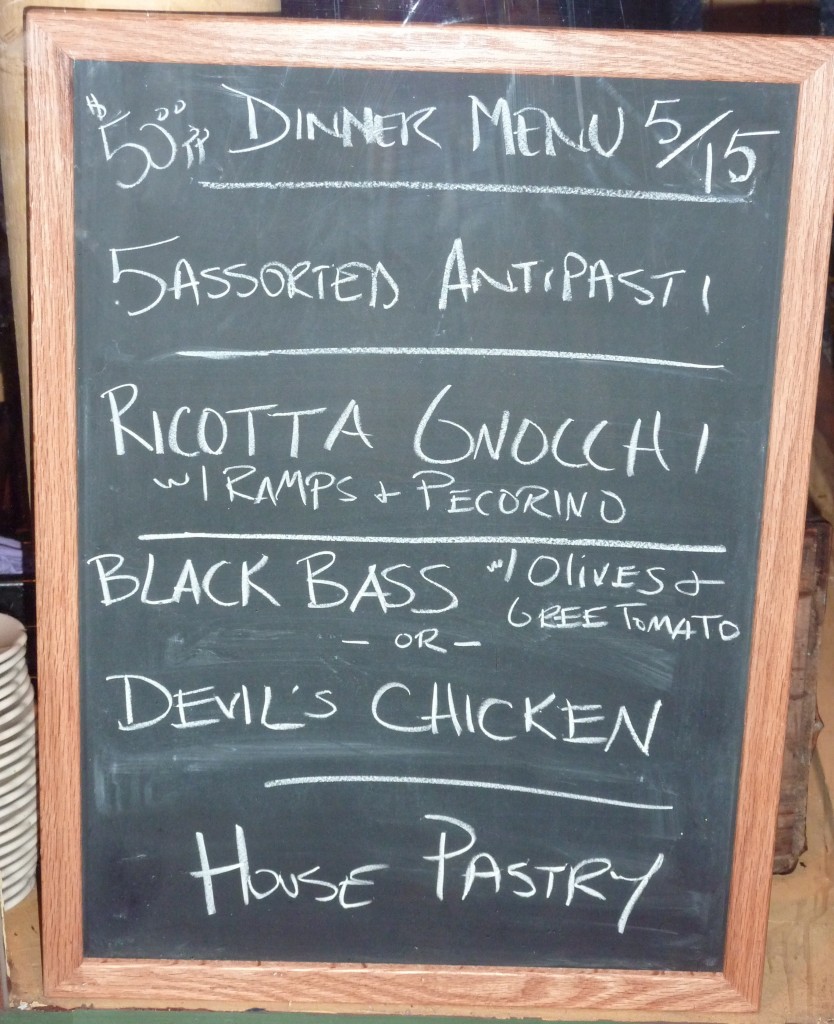 $50.00 PP DINNER MENU 5/15
5 ASSORTED ANTIPASTI
RICOTTA GNOCCHI
w/ RAMPS & PECORINO
BLACK BASS w/ OLIVES &
GREE TOMATO
- OR -
DEVIL'S CHICKEN
HOUSE PASTRY